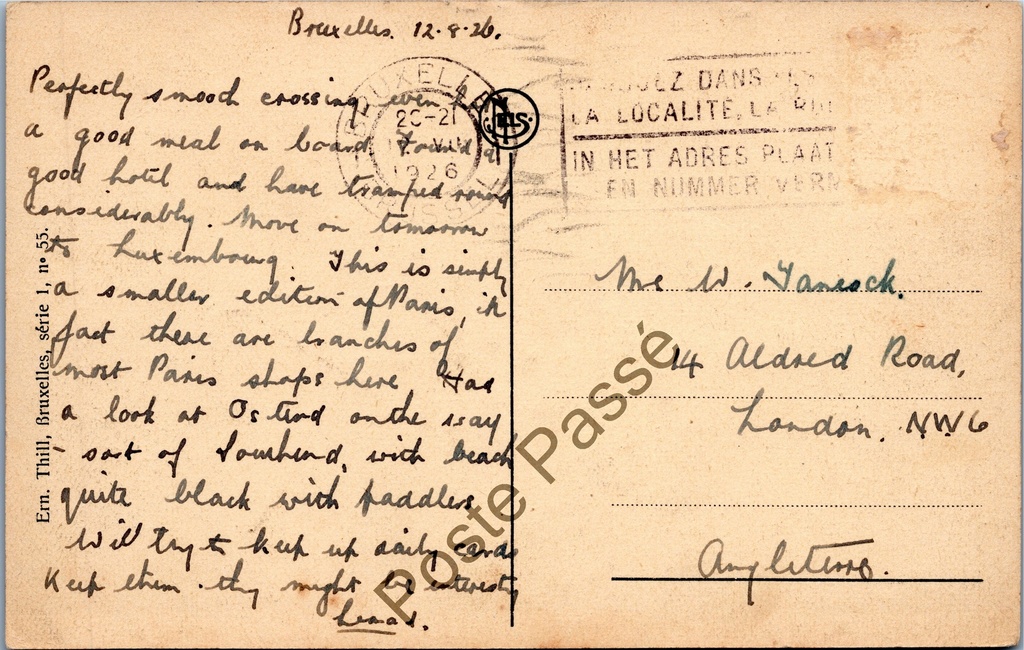 Bruxelles. 12.8.26.
Perfectly smooth crossing, even
a good meal on board. Found a
good hotel and have tramped round
considerably. Move on tomorrow
to Luxembourg. This is simply
a smaller edition of Paris, in
fact there are branches of
most Paris shops here. Had
a look at Ostend on the way
- sort of Southend, with beach
quite black with paddlers
Will try to keep up daily cards
Keep them. they might be interesting
Ern. Thill, Bruxelles, série 1, n° 55.
BRUXELLES
20-21
VIII
1926
NELS
DANS
LA LOCALITE, LA RUE
IN HET ADRES PLAAT
EN NUMMER VERM
W.
14 Aldred Road,
London. NW6
Angleterre.
Poste Passé